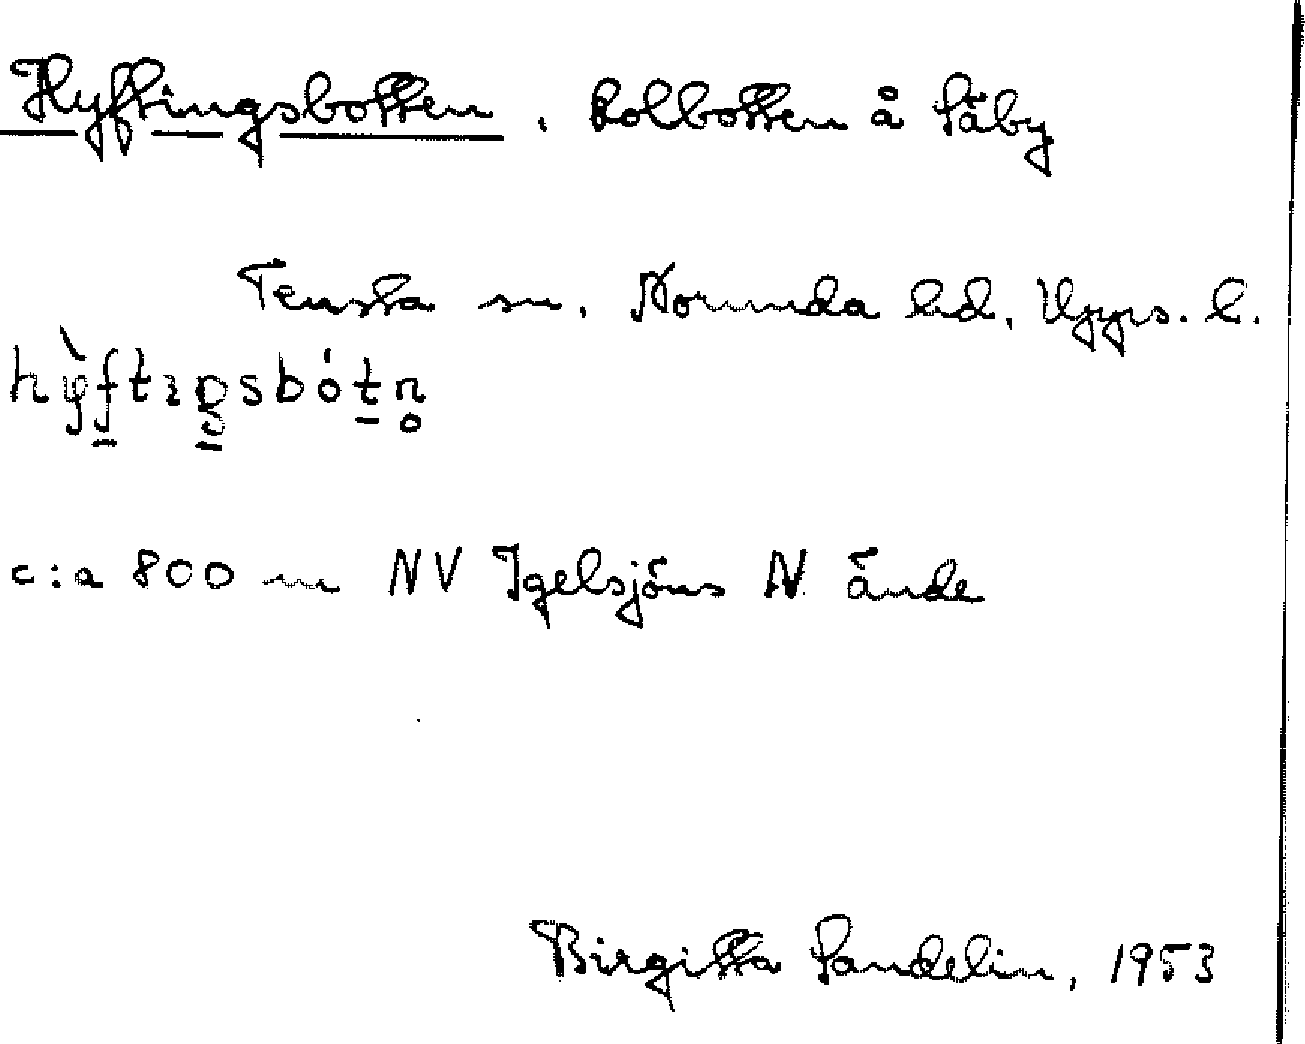 Hyftingsbotten, Kolbotten å Säby
Tensta sn, Norunda hd, Upps. l.
hỳftıŋsbótn̥
c:a 800 m NV Igelsjöns N ände
Birgitta Sandelin, 1953